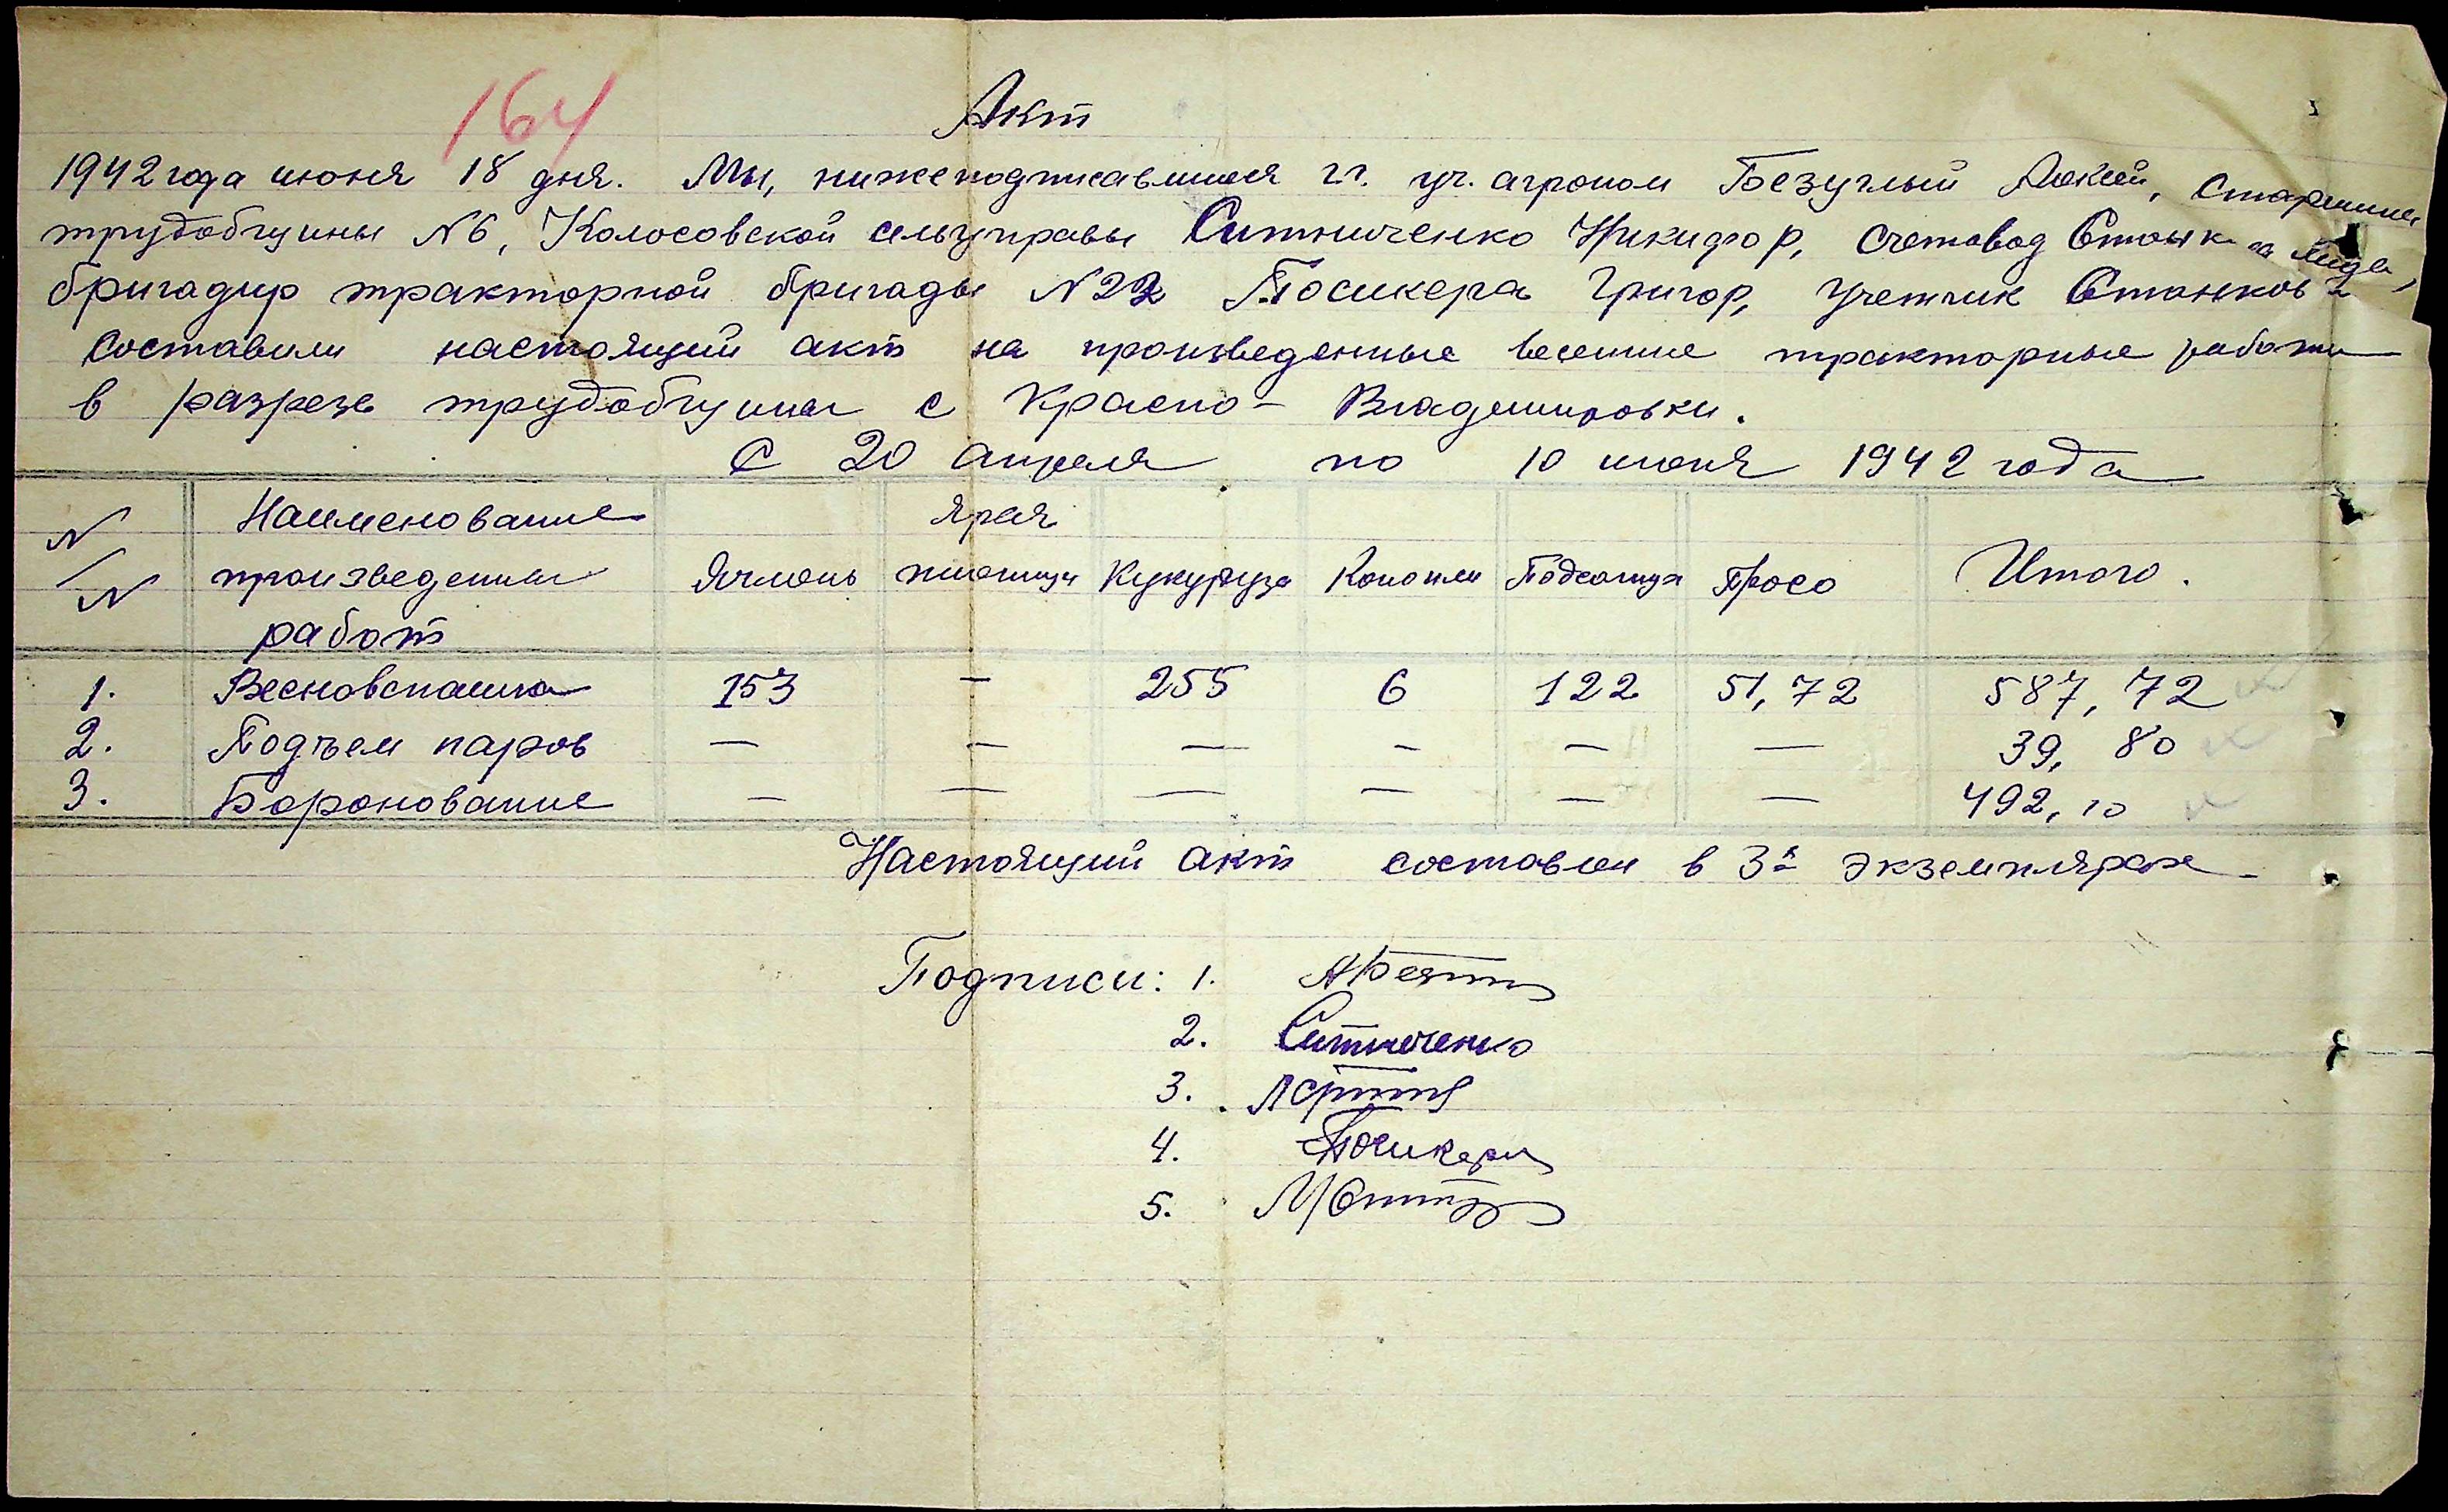 164
Акт
1942 года июня 18 дня. Мы, нижеподписавшиеся гг. уч. агроном Безуглый Алексей, старшина
трудобщины №6, Колосовской сельуправы Ситниченко Никифор, счетовод Лида,
бригадир тракторной бригады №22 Посикера Григор, учетчик Станков
составили настоящий акт на произведенные весенние тракторные работы
в разрезе трудобщины с Красно-Владимировки.
С 20 апреля по 10 июня 1942 года
N/N Наименование произведенных работ Ячмень Ярая пшеница Кукуруза Конопли Подсолнух Просо Итого.
1. Весновспашка 153 – 255 6 122 51,72 587,72
2. Подъем паров – – – – – – 39,80
3. Боронование – – – – – – 492,10
Настоящий акт составлен в 3х экземплярах
Подписи: 1.
2. Ситниченко
3.
4. Посикера
5.